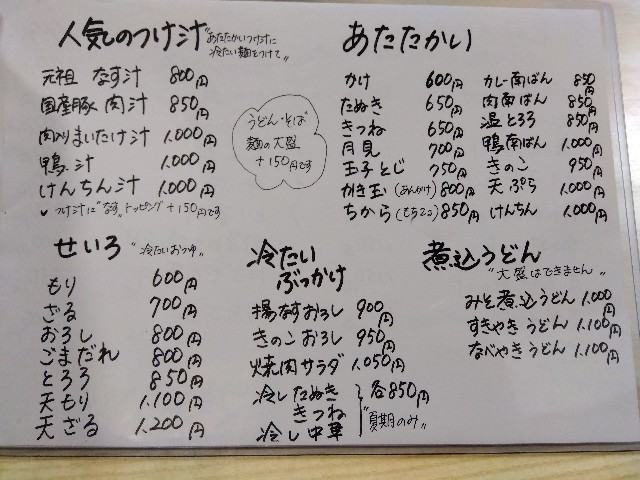 人気のつけ汁 "あたたかいつけ汁に
冷たい麺をつけて"
元祖 なす汁 800円
国産豚 肉汁 850円
肉入りまいたけ汁 1,000円
鴨汁 1,000円
けんちん汁 1,000円
つけ汁に"なす"トッピング+150円です
うどん・そば
麺の大盛
+150円です
あたたかい
かけ 600円
たぬき 650円
きつね 650円
月見 700円
玉子とじ 750円
かき玉(あんかけ) 800円
ちから(もち2コ) 850円
カレー南ばん 850円
肉南ばん 850円
温とろろ 850円
鴨南ばん 1,000円
きのこ 950円
天ぷら 1,000円
けんちん 1,000円
せいろ "冷たいおつゆ"
もり 600円
ざる 700円
おろし 800円
ごまだれ 800円
とろろ 850円
天もり 1,100円
天ざる 1,200円
冷たい
ぶっかけ
揚なすおろし 900円
きのこおろし 950円
焼肉サラダ 1,050円
冷したぬき
きつね
冷し中華
各850円
"夏期のみ"
煮込うどん
"大盛はできません"
みそ煮込うどん 1,000円
すきやきうどん 1,100円
なべやきうどん 1,100円